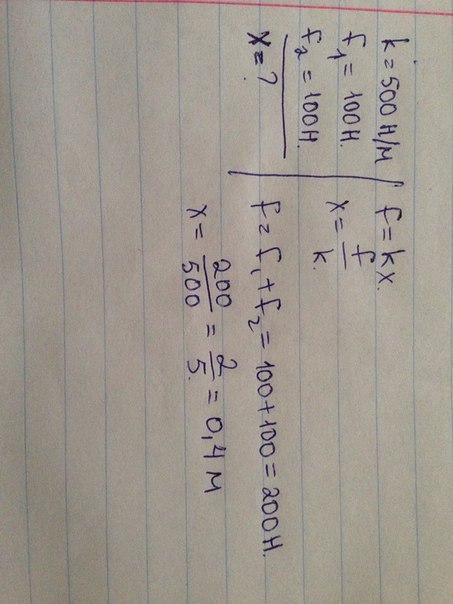 k = 500 Н/м
f₁ = 100 Н.
f₂ = 100 Н.
x = ?
f = kx.
x = f/k.
f = f₁ + f₂ = 100 + 100 = 200 Н.
x = 200/500 = 2/5. = 0,4 м